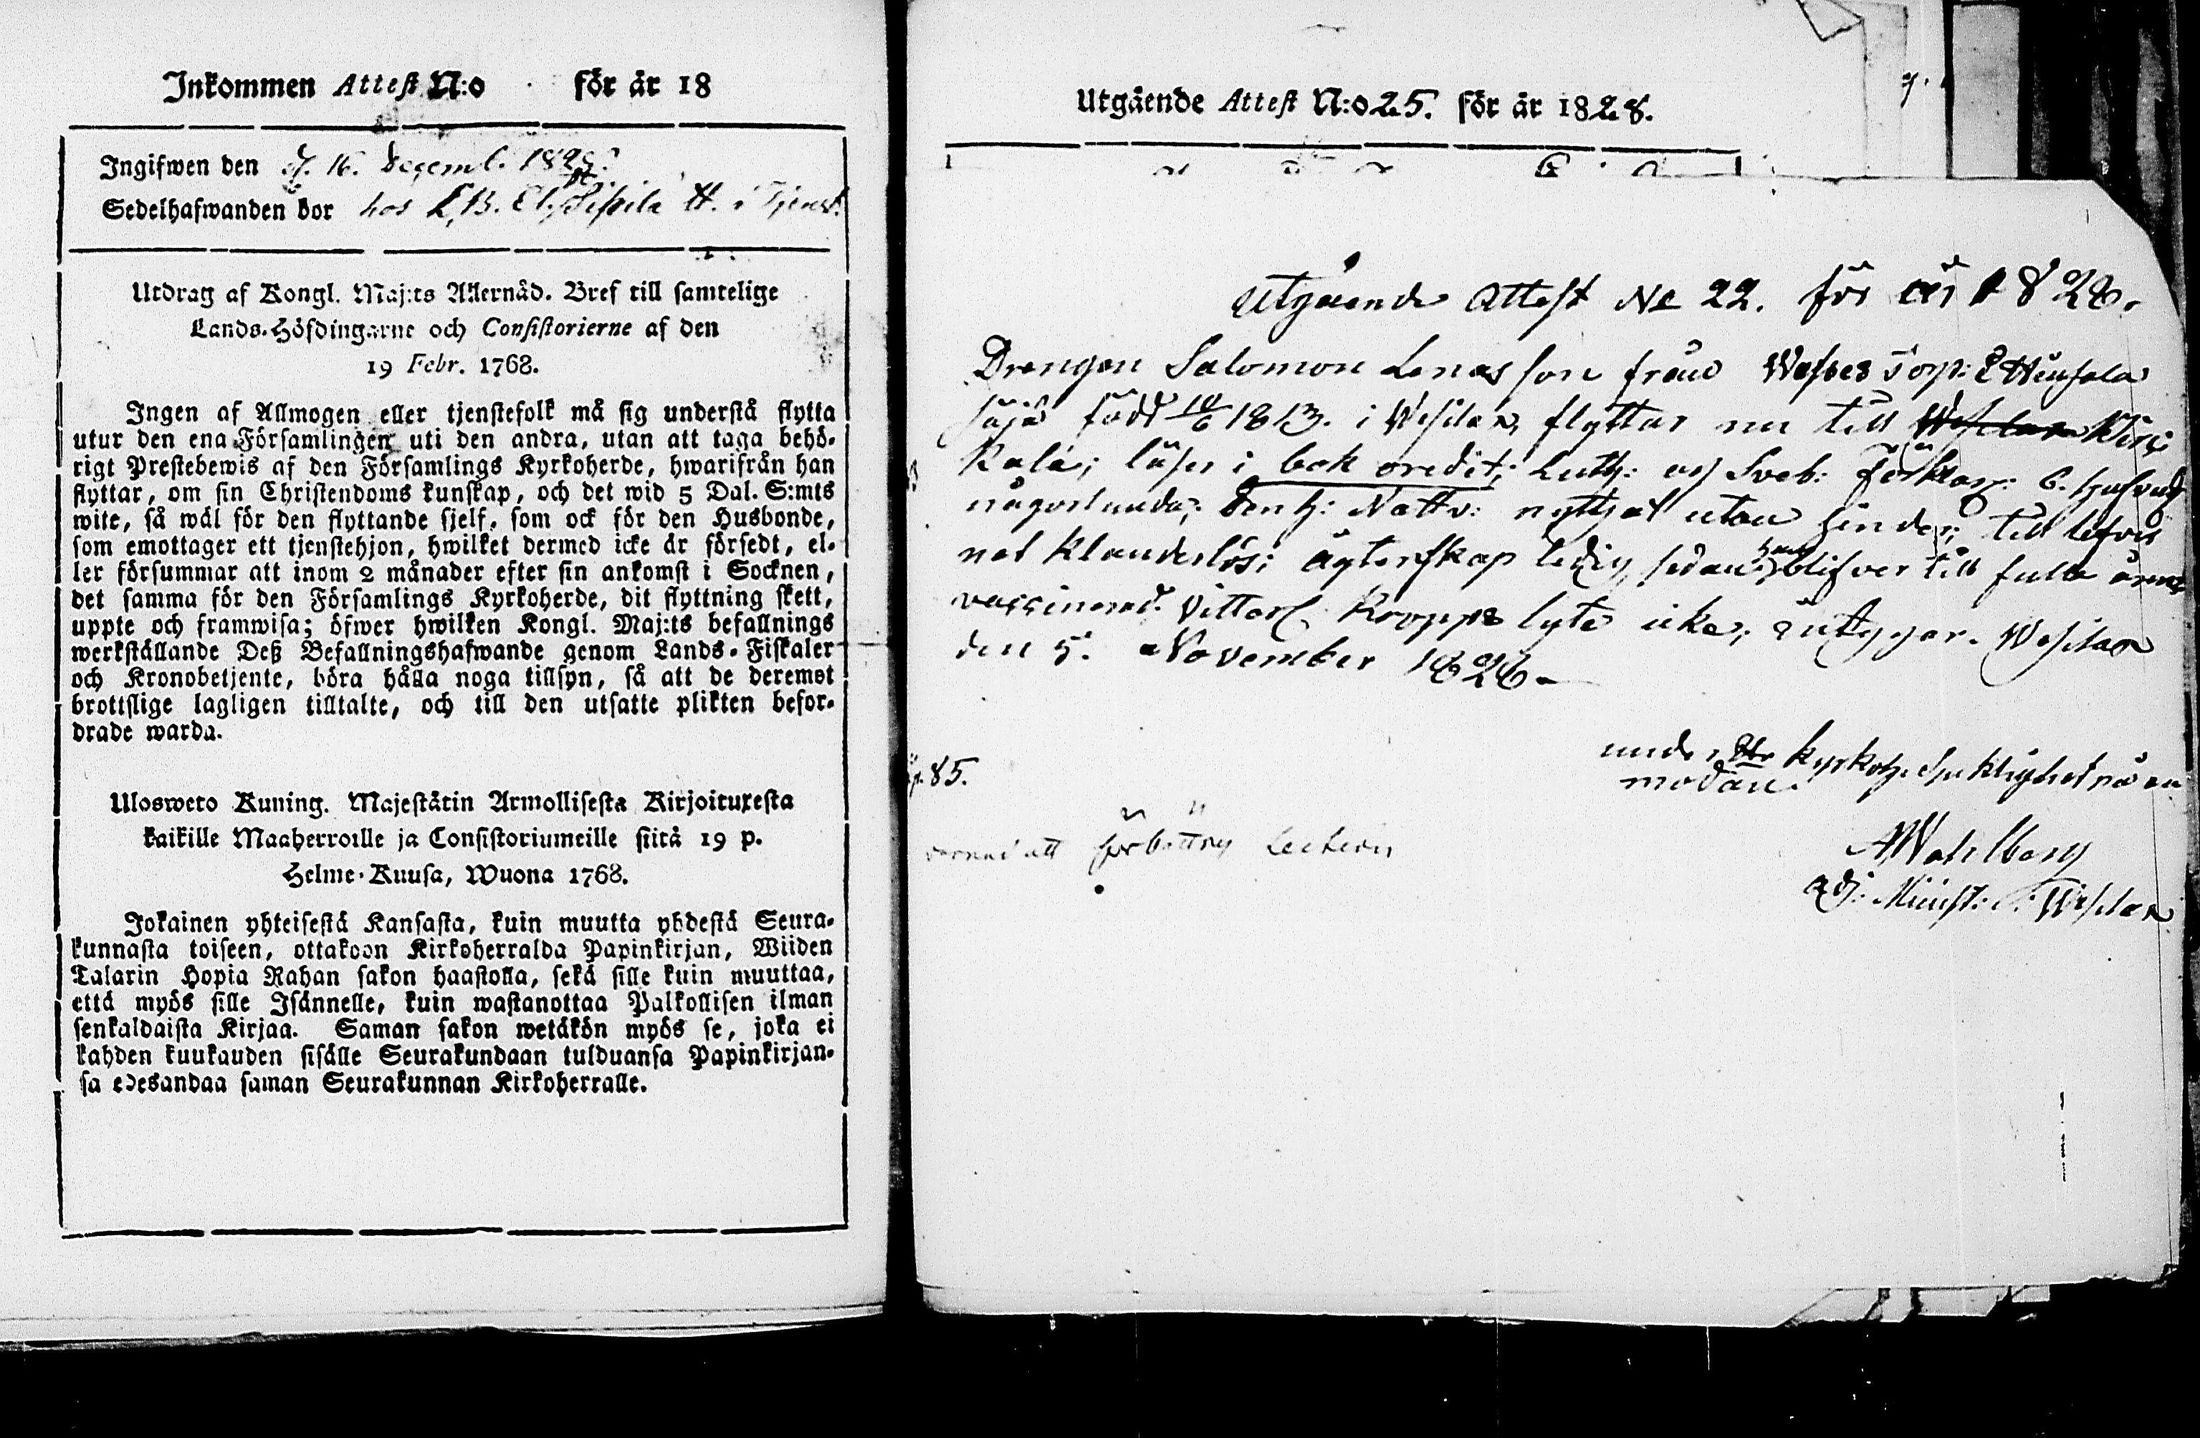 Inkommen Attest N:o för år 18
Ingifwen den d. 16. Decemb. 1828
Sedelhafwanden bor hos i Tjenst.
Utdrag af Kongl. Maj:ts Allernåd. Bref till samtelige
Lands-Höfdingarne och Consistorierne af den
19 Febr. 1768.
Ingen af Allmogen eller tjenstefolk må sig understå flytta
utur den ena Församlingen uti den andra, utan att taga behö-
rigt Prestebewis af den Församlings Kyrkoherde, hwarifrån han
flyttar, om sin Christendoms kunskap, och det wid 5 Dal. S:mts
wite, så wäl för den flyttande sjelf, som ock för den Husbonde,
som emottager ett tjenstehjon, hwilket dermed icke är försedt, el-
ler försummar att inom 2 månader efter sin ankomst i Socknen,
det samma för den Församlings Kyrkoherde, dit flyttning skett,
uppte och framwisa; öfwer hwilken Kongl. Maj:ts befallnings
werkställande Deß Befallningshafwande genom Lands-Fiskaler
och Kronobetjente, böra hålla noga tillsyn, så att de deremot
brottslige lagligen tilltalte, och till den utsatte plikten befor-
drade warda.
Ulosweto Kuning. Majestätin Armollisesta Kirjoituxesta
kaikille Maaherroille ja Consistoriumeille siitä 19 p.
Helme-Kuusa, Wuona 1768.
Jokainen yhteisestä Kansasta, kuin muutta yhdestä Seura-
kunnasta toiseen, ottakoon Kirkoherralda Papinkirjan, Wiiden
Talarin Hopia Rahan sakon haastolla, sekä sille kuin muuttaa,
että myös sille Isännelle, kuin wastanottaa Palkollisen ilman
senkaldaista Kirjaa. Saman sakon wetäkön myös se, joka ei
kahden kuukauden sisälle Seurakundaan tulduansa Papinkirjan-
sa edesandaa saman Seurakunnan Kirkoherralle.
Utgående Attest N:o 25. för år 1828.
Utgående Attest No 22. för år 1828.
Drengen Salomon Lenasson från Torp:
född 10/6 1813. i Wesilax, flyttar nu till Wesilax
Kala; läser i bok oredit; Luth: och Sveb: Förklar:
någorlunda; den h: Nattv: nyttjat utan hinder; till lefver
net klanderlös; ägtenskap ledig, sedan han blifver till fulla
vaccinerad. Vitterl. Kropps lyte icke; intygar. Wesilax
den 5. November 1828.
under Kyrkoh.
modan.
p. 85.
att förbättra Lection
A Wahlberg
adj: Minist: i Wesilax